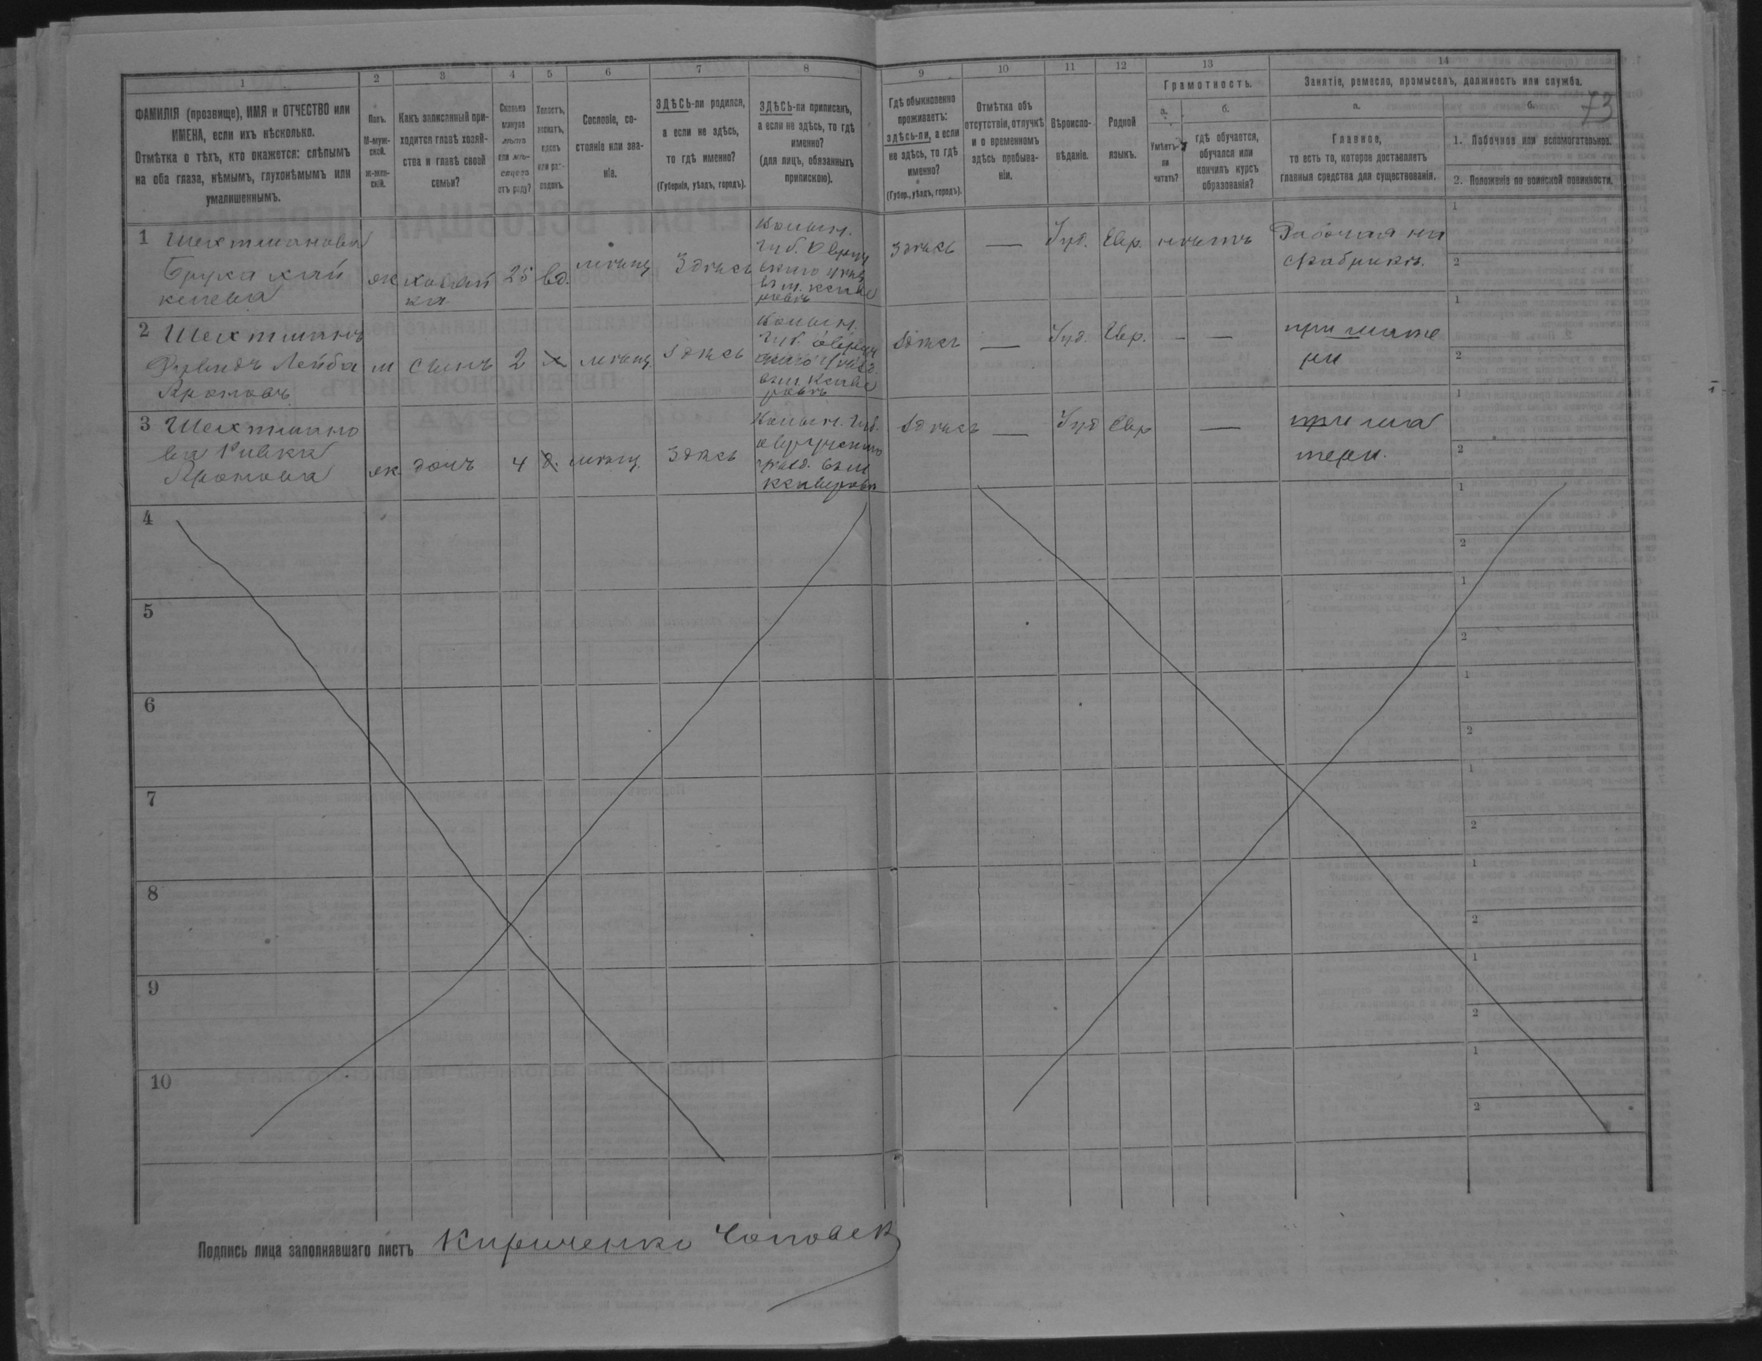 73
1 2 3 4 5 6 7 8 9 10 11 12 13 14
ФАМИЛІЯ (прозвище), ИМЯ и ОТЧЕСТВО или
ИМЕНА, если ихъ нѣсколько.
Отмѣтка о тѣхъ, кто окажется: слѣпымъ
на оба глаза, нѣмымъ, глухонѣмымъ или
умалишеннымъ.
Полъ.
М-муж-
ской.
Ж-жен-
скій.
Какъ записанный при-
ходится главѣ хозяй-
ства и главѣ своей
семьи?
Сколько
минуло
лѣтъ
или мѣ-
сяцевъ
отъ роду?
Холостъ,
женатъ,
вдовъ
или раз-
веденъ.
Сословіе, со-
стояніе или зва-
ніе.
ЗДѢСЬ-ли родился,
а если не здѣсь,
то гдѣ именно?
(Губернія, уѣздъ, городъ).
ЗДѢСЬ-ли приписанъ,
а если не здѣсь, то гдѣ
именно?
(для лицъ, обязанныхъ
припискою).
Гдѣ обыкновенно
проживаетъ:
здѣсь-ли, а если
не здѣсь, то гдѣ
именно?
(Губер., уѣздъ, городъ).
Отмѣтка объ
отсутствіи, отлучкѣ
и о временномъ
здѣсь пребыва-
ніи.
Вѣроиспо-
вѣданіе.
Родной
языкъ.
Грамотность.
а.
Умѣетъ-
ли
читать?
б.
гдѣ обучается,
обучался или
кончилъ курсъ
образованія?
Занятіе, ремесло, промыселъ, должность или служба.
а.
Главное,
то есть то, которое доставляетъ
главныя средства для существованія.
б.
1. Побочное или вспомогательное.
2. Положеніе по воинской повинности.
1 Шехтманова
Брука
ж хозяй
ка
25 вд.
мѣщ
Здѣсь
Волын.
губ.
здѣсь — Іуд. Евр. нѣтъ
Рабочая на
фабрикѣ.
1
2
2 Шехтманъ
Лейба
м сынъ 2 х мѣщ здѣсь
Волын.
губ.
здѣсь — Іуд. Евр. — —
при мате
ри
1
2
3 Шехтмано
ва Ривка
ж дочь 4 мѣщ здѣсь
Волын. губ.
здѣсь — Іуд Евр —
при ма
тери.
1
2
4
1
2
5
1
2
6
1
2
7
1
2
8
1
2
9
1
2
10
1
2
Подпись лица заполнявшаго листъ Кириченко